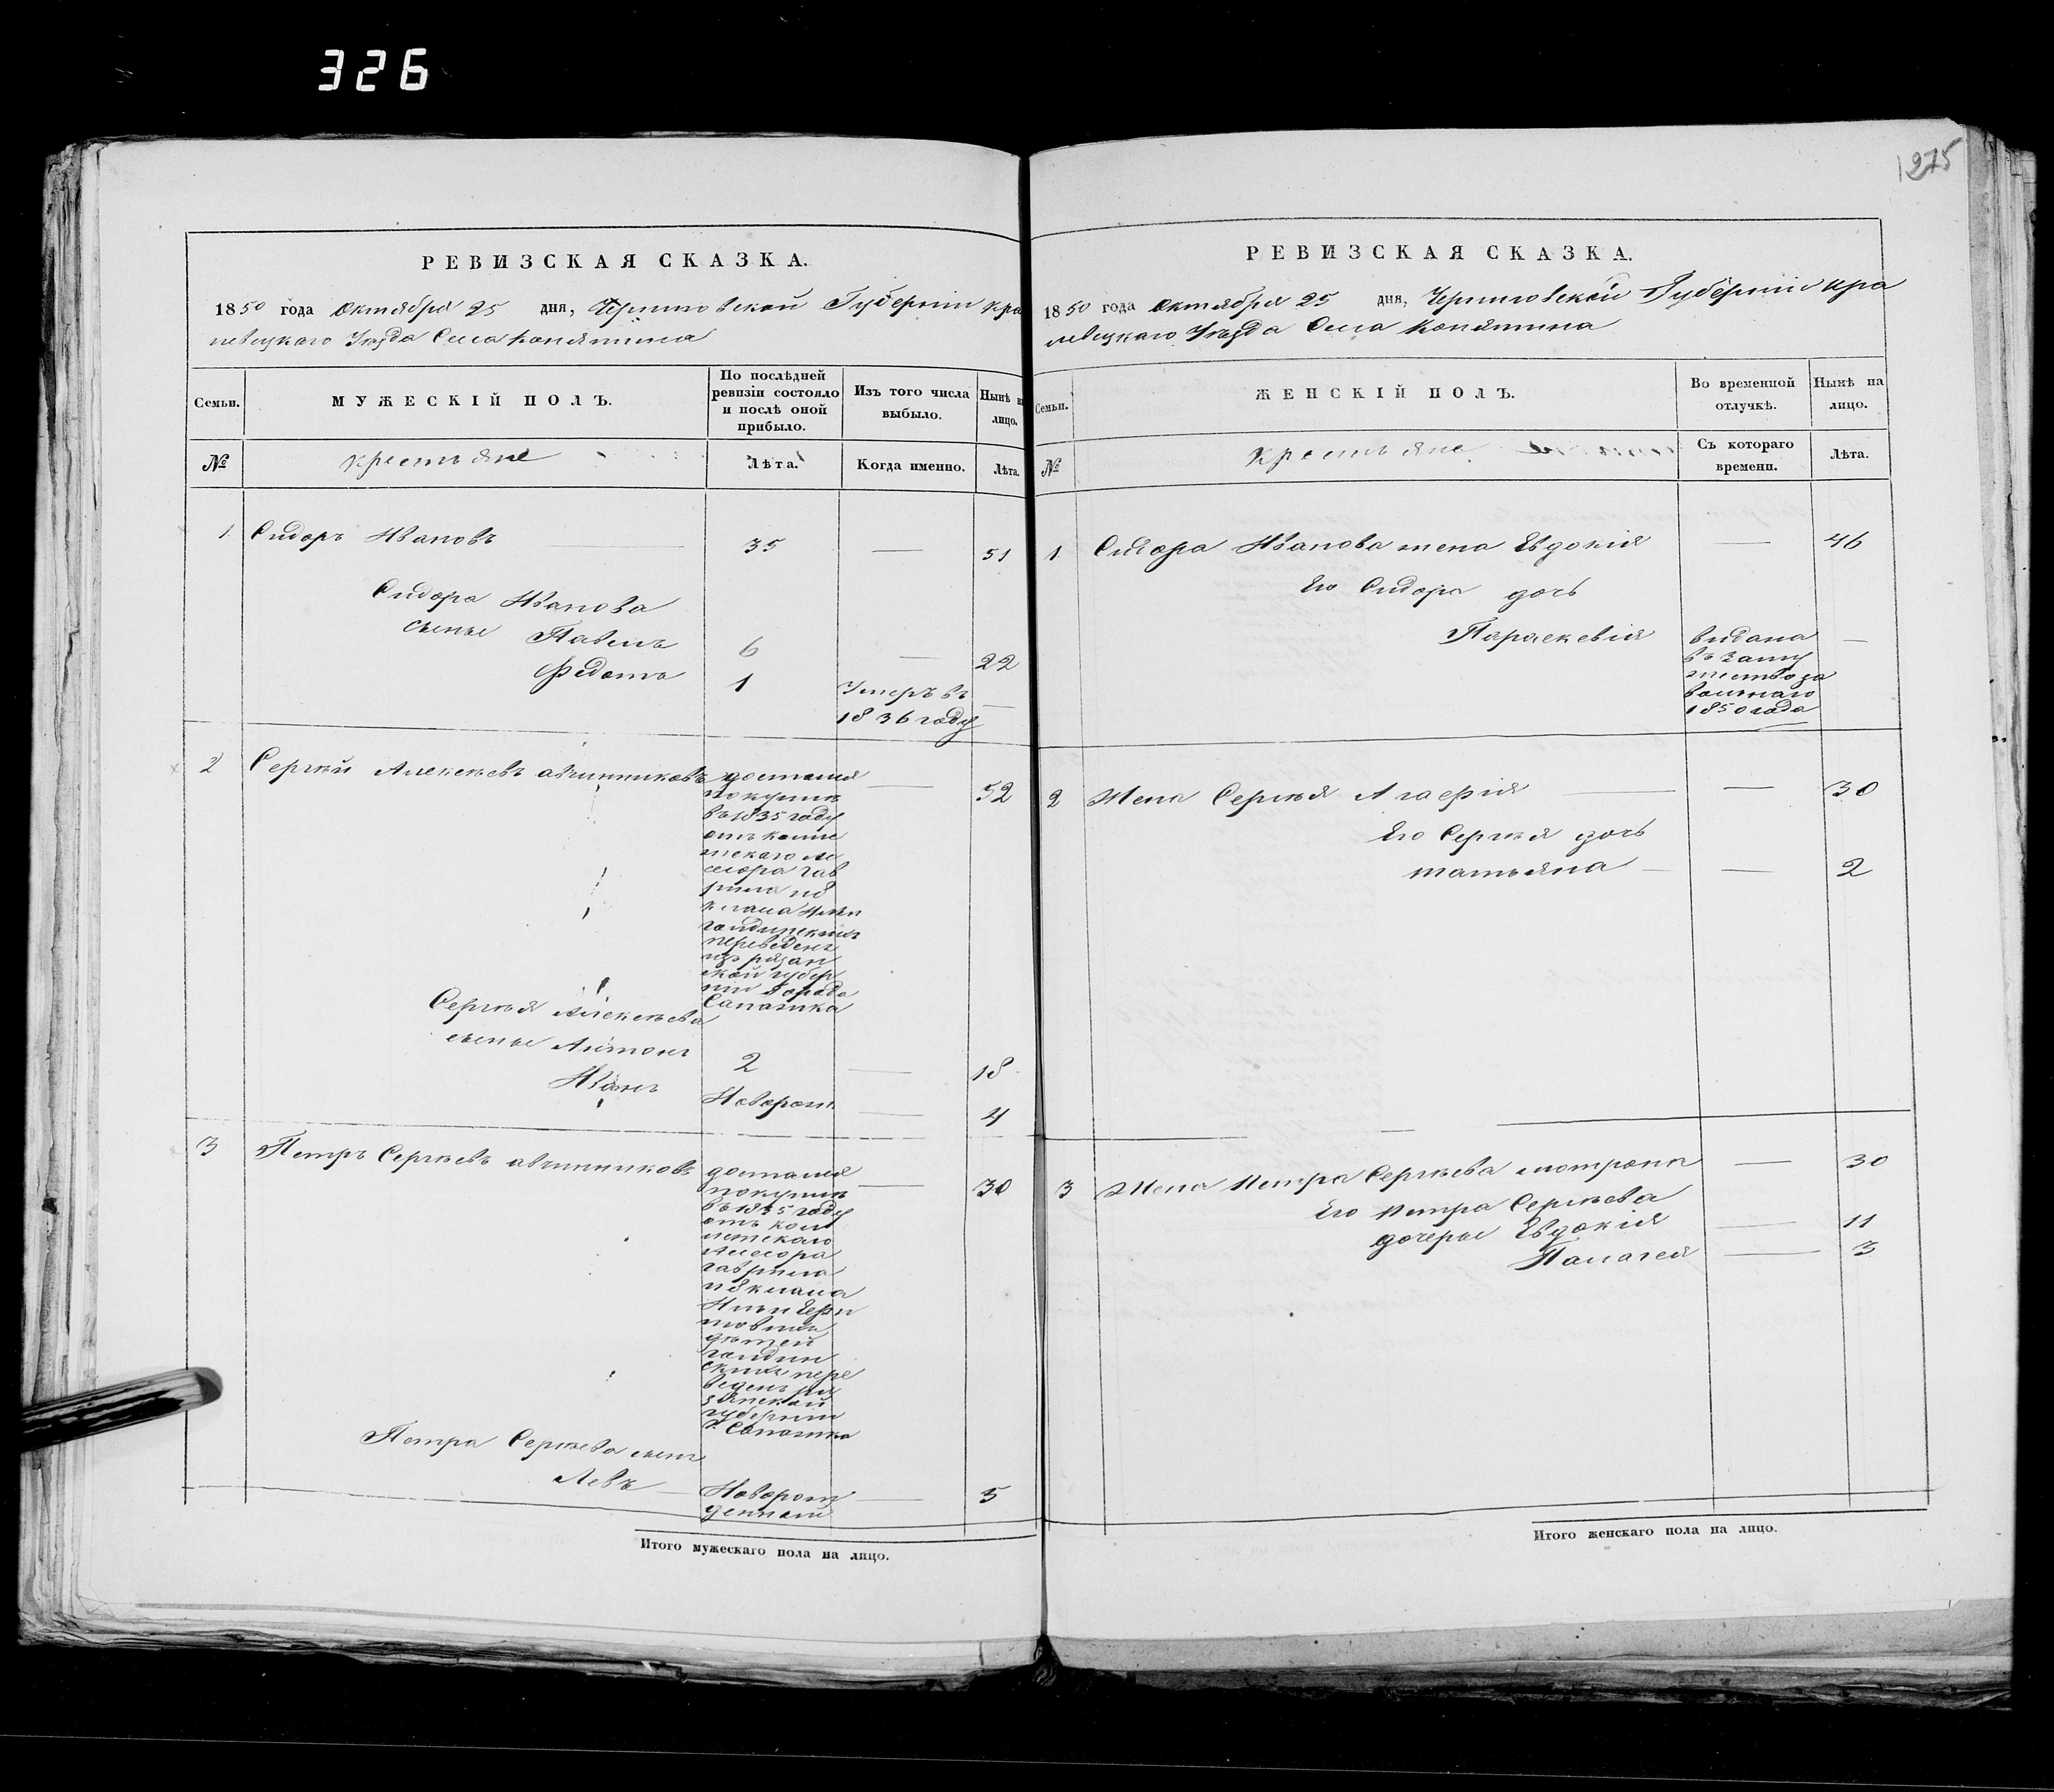 326
275
РЕВИЗСКАЯ СКАЗКА.
1850 года Октября 25 дня, Черниговской Губернии Кро
левецкаго Уѣзда Села Конятина
Семьи.
МУЖЕСКІЙ ПОЛЪ.
По послѣдней ревизіи состояло и послѣ оной прибыло.
Изъ того числа выбыло.
Нынѣ на лицо.
№
Крестьяне
Лѣта.
Когда именно.
Лѣта.
1 Сидоръ Ивановъ — 35 — 51
Сидора Иванова
сыны Павелъ 6 — 22
Федотъ 1 Умеръ въ —
1836 году
2 Сергѣй Алексѣевъ авчинниковъ достался — 52
покупкѣ
въ 1835 году
отъ колле
жскаго Ас
сесора Гав
рила
переведенъ
изъ рязан
ской губер
ніи Города
Сапожка
Сергѣя Алексѣева
сыны Антонъ 2 — 18
Иванъ Новорож. — 4
3 Петръ Сергѣевъ авчинниковъ достался — 30
покупкѣ
въ 1835 году
отъ кол
лежскаго
Асесора
гаврила
дѣтей
скихъ пере
веденъ ря
занской
губерніи
г. Сапожка
Петра Сергѣева сынъ
Левъ — Новорож — 5
денной
Итого мужескаго пола на лицо.
РЕВИЗСКАЯ СКАЗКА.
1850 года Октября 25 дня, Черниговской Губерніи Кро
левецкаго Уѣзда Села Конятина
Семьи.
ЖЕНСКІЙ ПОЛЪ.
Во временной отлучкѣ.
Нынѣ на лицо.
№
Крестьяне
Съ котораго времени.
Лѣта.
1 Сидора Иванова жена Евдокія — 46
Его Сидора дочь
Параскевія видана —
въ Заму
жество за
вольнаго
1850 года
2 Жена Сергѣя Агафія — — 30
Его Сергѣя дочь
татьяна — — 2
3 Жена Петра Сергѣева мотрона — 30
Его Петра Сергѣева
дочеры Евдокія — 11
Палагея — 3
Итого женскаго пола на лицо.